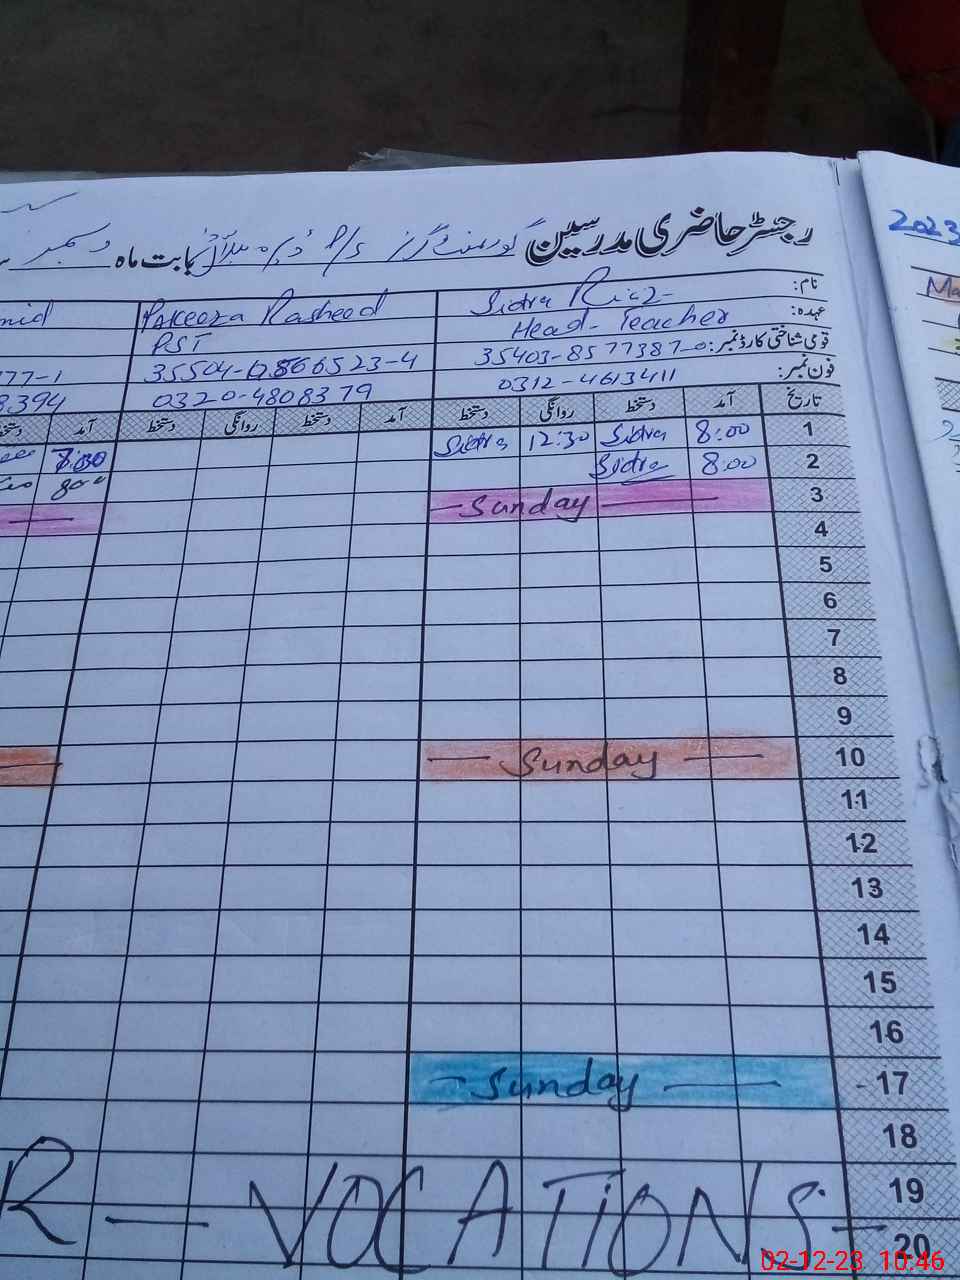 رجسٹر حاضری مدرسین گورنمنٹ گرلز P/S بابت ماہ دسمبر
2023
نام: Sidra Riaz Pakeeza Rasheed
عہدہ: Head-Teacher PST
قومی شناختی کارڈ نمبر: 35403-8577387-0 77-1
فون نمبر: 0312-4613411 0320-4808379 8394
تاریخ آمد دستخط روانگی دستخط آمد دستخط روانگی دستخط آمد
1 8:00 Sidra 12:30 Sidra
2 8:00 Sidra
3 Sunday
4
5
6
7
8
9
10 Sunday
11
12
13
14
15
16
17 Sunday
18
19
R — VOCATIONS —
20
02-12-23 10:46